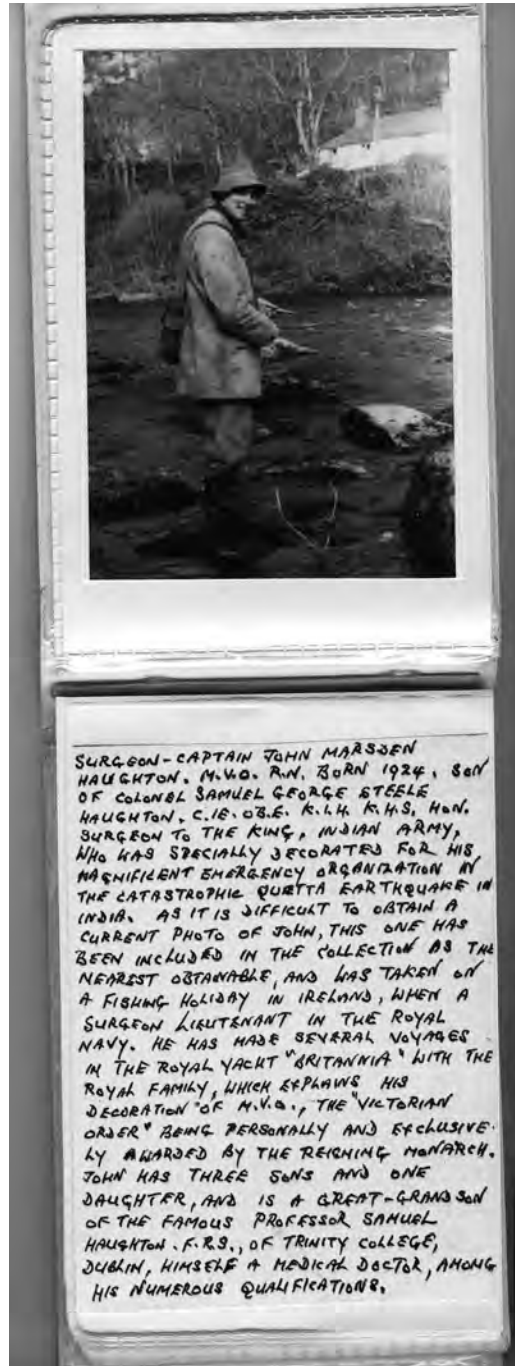 SURGEON-CAPTAIN JOHN MARSDEN
HAUGHTON. M.V.O. R.N. BORN 1924. SON
OF COLONEL SAMUEL GEORGE STEELE
HAUGHTON. C.IE. OB.E. K.L.H. K.H.S, HON.
SURGEON TO THE KING, INDIAN ARMY,
WHO WAS SPECIALLY DECORATED FOR HIS
MAGNIFICENT EMERGENCY ORGANIZATION IN
THE CATASTROPHIC QUETTA EARTHQUAKE IN
INDIA. AS IT IS DIFFICULT TO OBTAIN A
CURRENT PHOTO OF JOHN, THIS ONE HAS
BEEN INCLUDED IN THE COLLECTION AS THE
NEAREST OBTAINABLE, AND WAS TAKEN ON
A FISHING HOLIDAY IN IRELAND, WHEN A
SURGEON LIEUTENANT IN THE ROYAL
NAVY. HE HAS MADE SEVERAL VOYAGES
IN THE ROYAL YACHT "BRITANNIA" WITH THE
ROYAL FAMILY, WHICH EXPLAINS HIS
DECORATION OF M.V.O., THE "VICTORIAN
ORDER" BEING PERSONALLY AND EXCLUSIVE-
LY AWARDED BY THE REIGNING MONARCH.
JOHN HAS THREE SONS AND ONE
DAUGHTER, AND IS A GREAT-GRANDSON
OF THE FAMOUS PROFESSOR SAMUEL
HAUGHTON. F.R.S., OF TRINITY COLLEGE,
DUBLIN, HIMSELF A MEDICAL DOCTOR, AMONG
HIS NUMEROUS QUALIFICATIONS.